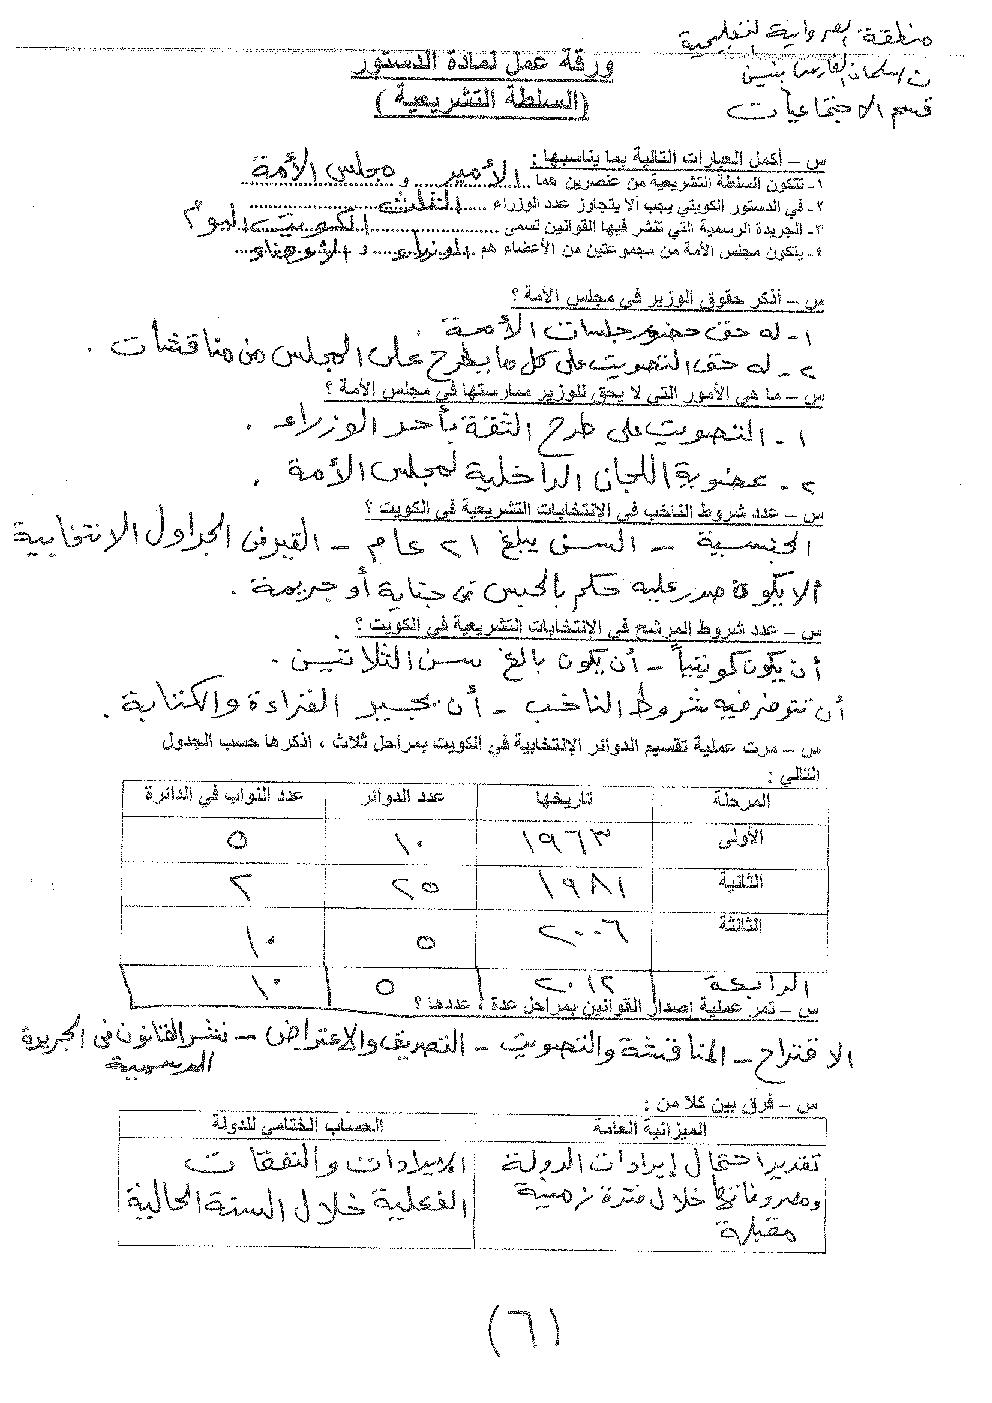 منطقة الفروانية التعليمية
ث / سلمان الفارسي بنين
قسم الاجتماعيات
ورقة عمل لمادة الدستور
(السلطة التشريعية)
س – أكمل العبارات التالية بما يناسبها :
١- تتكون السلطة التشريعية من عنصرين هما الأمير و مجلس الأمة
٢- في الدستور الكويتي يجب ألا يتجاوز عدد الوزراء الثلث
٣- الجريدة الرسمية التي تنشر فيها القوانين تسمى الكويت اليوم
٤- يتكون مجلس الأمة من مجموعتين من الأعضاء هم الوزراء و
س – أذكر حقوق الوزير في مجلس الأمة ؟
١- له حق حضور جلسات الأمة .
٢- له حق التصويت على كل ما يطرح على المجلس من مناقشات .
س – ما هي الأمور التي لا يحق للوزير ممارستها في مجلس الأمة ؟
١- التصويت على طرح الثقة بأحد الوزراء .
٢- عضوية اللجان الداخلية لمجلس الأمة .
س – عدد شروط الناخب في الانتخابات التشريعية في الكويت ؟
الجنسية – السن يبلغ ٢١ عام – القيد في الجداول الانتخابية
ألا يكون صدر عليه حكم بالحبس في جناية أو جريمة .
س – عدد شروط المرشح في الانتخابات التشريعية في الكويت ؟
أن يكون كويتياً – أن يكون بالغ سن الثلاثين .
أن تتوفر فيه شروط الناخب – أن يجيد القراءة والكتابة .
س – مرت عملية تقسيم الدوائر الانتخابية في الكويت بمراحل ثلاث ، اذكرها حسب الجدول
التالي :
المرحلة تاريخها عدد الدوائر عدد النواب في الدائرة
الأولى ١٩٦٣ ١٠ ٥
الثانية ١٩٨١ ٢٥ ٢
الثالثة ٢٠٠٦ ٥ ١٠
الرابعة ٢٠١٢ ٥ ١٠
س – تمر عملية إصدار القوانين بمراحل عدة ، عددها ؟
الاقتراح – المناقشة والتصويت – التصديق والاعتراض – نشر القانون في الجريدة
الرسمية
س – فرق بين كلا من :
الميزانية العامة الحساب الختامي للدولة
تقدير احتمال إيرادات الدولة الإيرادات والنفقات
ومصروفاتها خلال فترة زمنية الفعلية خلال السنة الحالية
مقبلة
(٦)